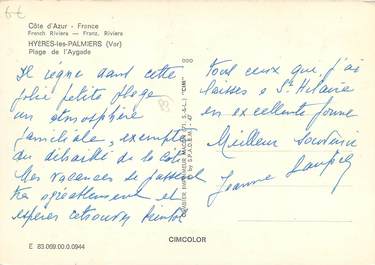 6€
Côte d'Azur - France
French Riviera — Franz. Riviera
HYERES-les-PALMIERS (Var)
Plage de l'Aygade
Il règne dans cette
jolie petite plage
un atmosphère
familiale, exempte
du débraillé de la côte
Mes vacances se passent
très agréablement et
espère retrouver bientôt
tous ceux que j'ai
laissés à St Hilaire
en excellente forme
Meilleur Souvenir
Jeanne
COMBIER IMPRIMEUR MACON "CIM"
CIMCOLOR
E 83.069.00.0.0944